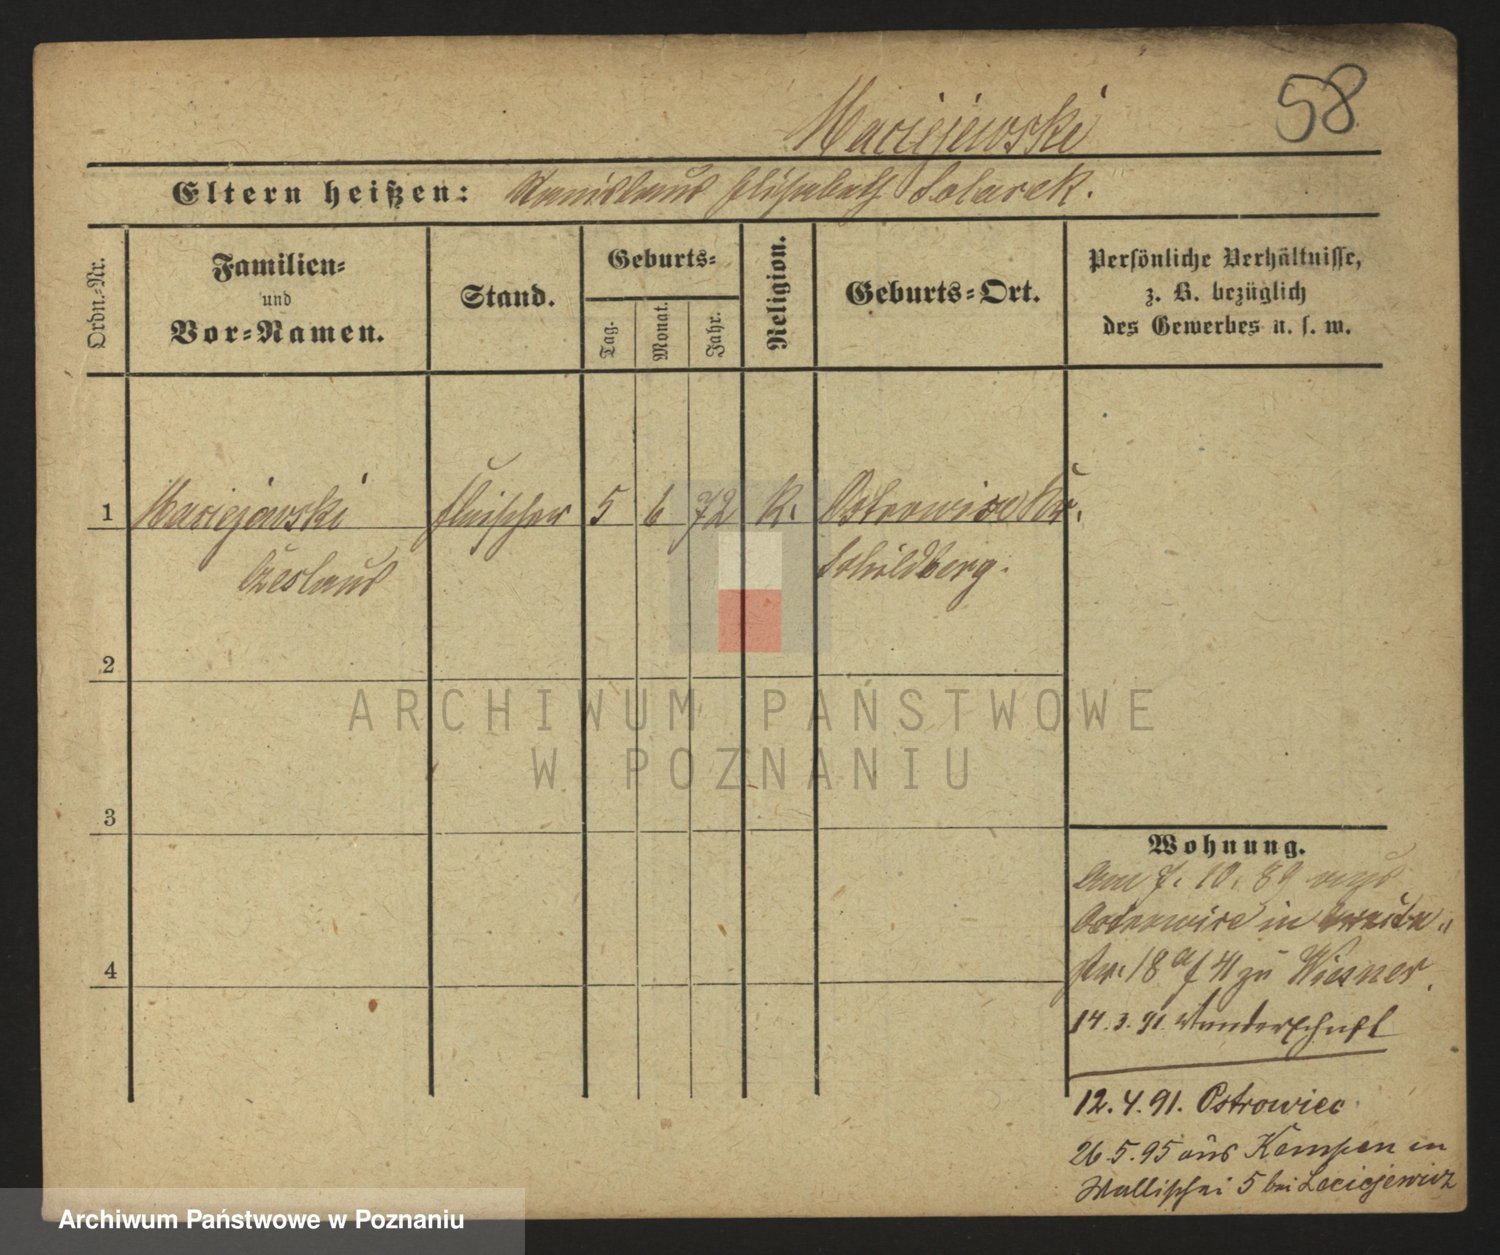 58
Maciejewski
Eltern heißen: Stanislaus Elisabeth Solarek.
Ordn.-Nr.
Familien-
und
Vor-Namen.
Stand.
Geburts-
Tag.
Monat.
Jahr.
Religion.
Geburts-Ort.
Persönliche Verhältnisse,
z. B. bezüglich
des Gewerbes u. s. w.
1 Maciejewski Fleischer 5 6 72 K. Ostrowiec Kr.
Czeslaus Schildberg.
2
3
4
Wohnung.
Am 7. 10. 89 aus
Ostrowiec in Breite
str. 18 a/f 41 zu Wiesner.
14.3.91. Wanderschaft
12.4.91. Ostrowiec
26.5.95 aus Kempen in
Wallischei 5 bei Leciejewicz
ARCHIWUM PAŃSTWOWE
W POZNANIU
Archiwum Państwowe w Poznaniu